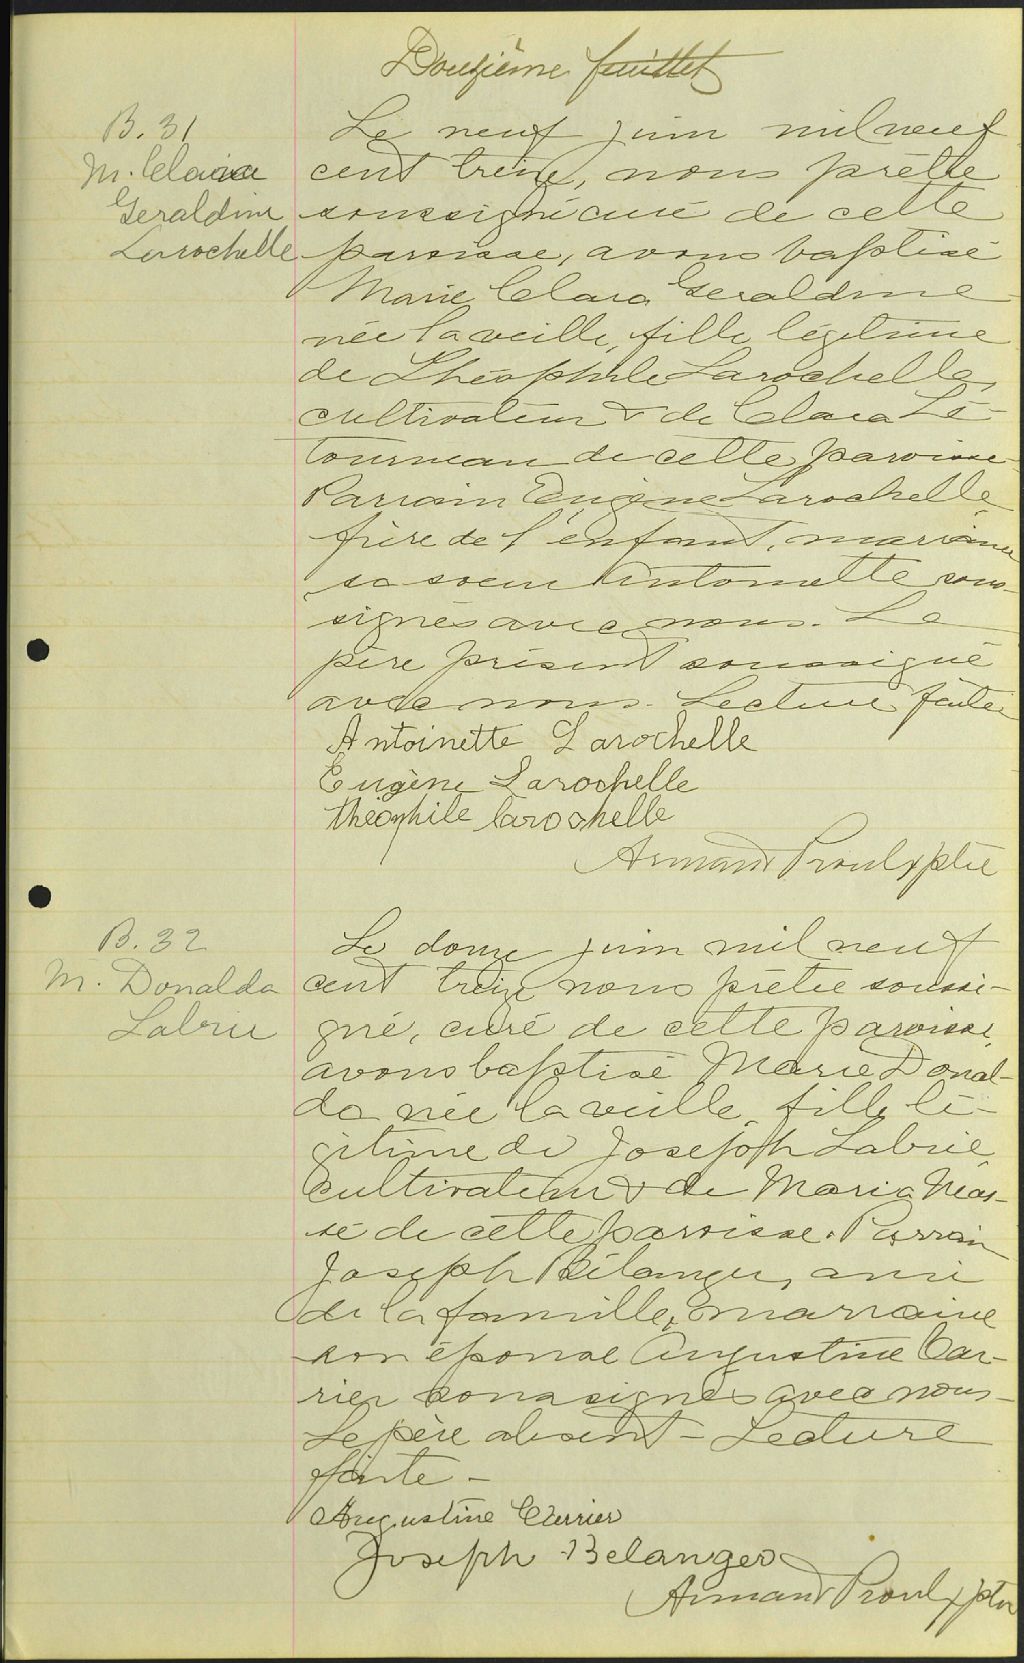 Douzième feuillet
B. 31
M. Clara
Geraldine
Larochelle
Le neuf juin mil neuf
cent treize, nous prêtre
soussigné curé de cette
paroisse, avons baptisé
Marie Clara Geraldine
née la veille, fille légitime
de Théophile Larochelle,
cultivateur & de Clara Lé-
tourneau de cette paroisse-
Parrain Eugène Larochelle
frère de l'enfant, marraine
sa soeur Antoinette sous-
signés avec nous. Le
père présent soussigné
avec nous. Lecture faite
Antoinette Larochelle
Eugène Larochelle
théophile larochelle
Armand Proulx ptre
B. 32
M. Donalda
Labrie
Le douze juin mil neuf
cent treize nous prêtre soussi-
gné, curé de cette paroisse,
avons baptisé Marie Donal-
da née la veille, fille lé-
gitime de Joseph Labrie
cultivateur & de Maria Mas-
sé de cette paroisse. Parrain
Joseph Bélanger, ami
de la famille, marraine
son épouse Augustine Car-
rier soussignés avec nous-
Le père absent - Lecture
faite -
Augustine Carrier
Joseph Belanger
Armand Proulx ptre